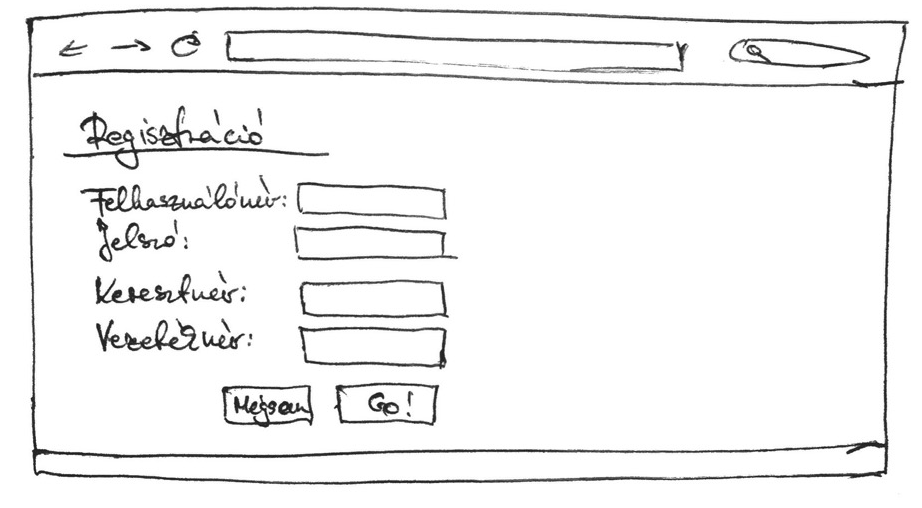 Regisztráció
Felhasználónév:
Jelszó:
Keresztnév:
Vezetéknév:
Mégsem Go!